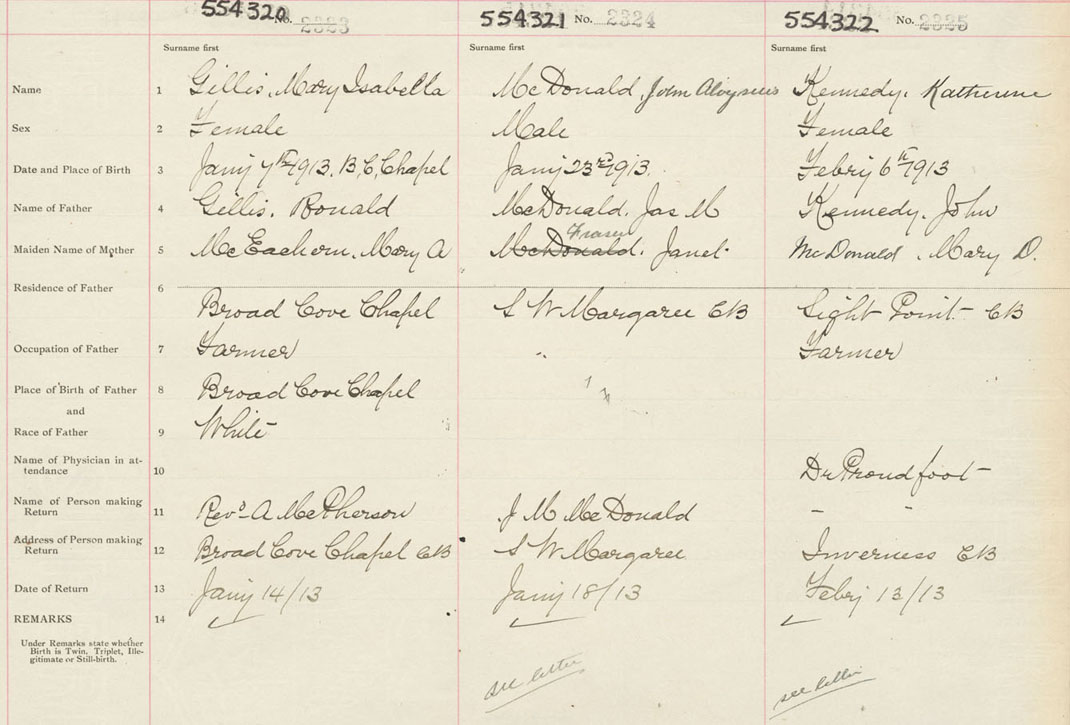 554320 No. 2323 554321 No. 2324 554322 No. 2325
Surname first Surname first Surname first
Name 1 Gillis, Mary Isabella McDonald, John Aloysius Kennedy, Katherine
Sex 2 Female Male Female
Date and Place of Birth 3 Jany 7th 1913. B,C,Chapel Jany 23rd 1913. Febry 6th 1913
Name of Father 4 Gillis, Ronald McDonald, Jas M Kennedy, John
Fraser
Maiden Name of Mother 5 McEachern, Mary A McDonald, Janet McDonald, Mary D.
Residence of Father 6
Broad Cove Chapel S W Margaree CB Sight Point CB
Occupation of Father 7 Farmer " Farmer
Place of Birth of Father 8 Broad Cove Chapel
and
Race of Father 9 White
Name of Physician in at-
tendance 10 Dr Proudfoot
Name of Person making
Return 11 Revd A McPherson J M McDonald " "
Address of Person making
Return 12 Broad Cove Chapel CB S W Margaree Inverness CB
Date of Return 13 Jany 14/13 Jany 18/13 Febry 13/13
REMARKS 14
Under Remarks state whether
Birth is Twin, Triplet, Ille-
gitimate or Still-birth.
see letter see letter